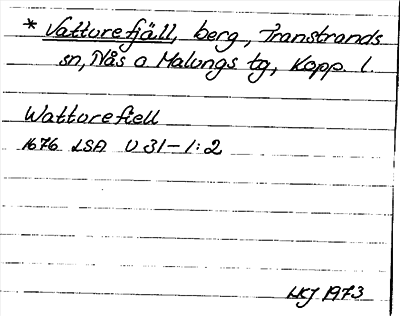 * Vatturefjäll, berg, Transtrands
sn, Nås o Malungs tg, Kopp. l.
Watturefiell
1676 LSA U 31-1:2
LKJ 1973